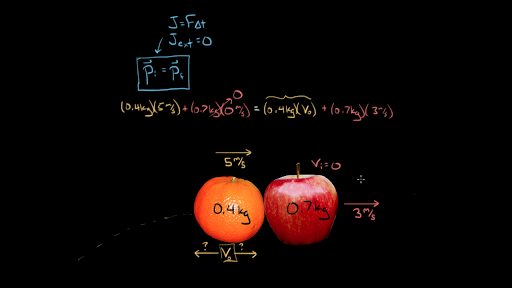 J=FΔt
J ext=0
p⃗i = p⃗f
(0.4kg)(5m/s)+(0.7kg)(0m/s) = (0.4kg)(Vo) + (0.7kg)(3m/s)
0
5 m/s
Vi=0
0.4kg
0.7kg
3 m/s
? Vo ?